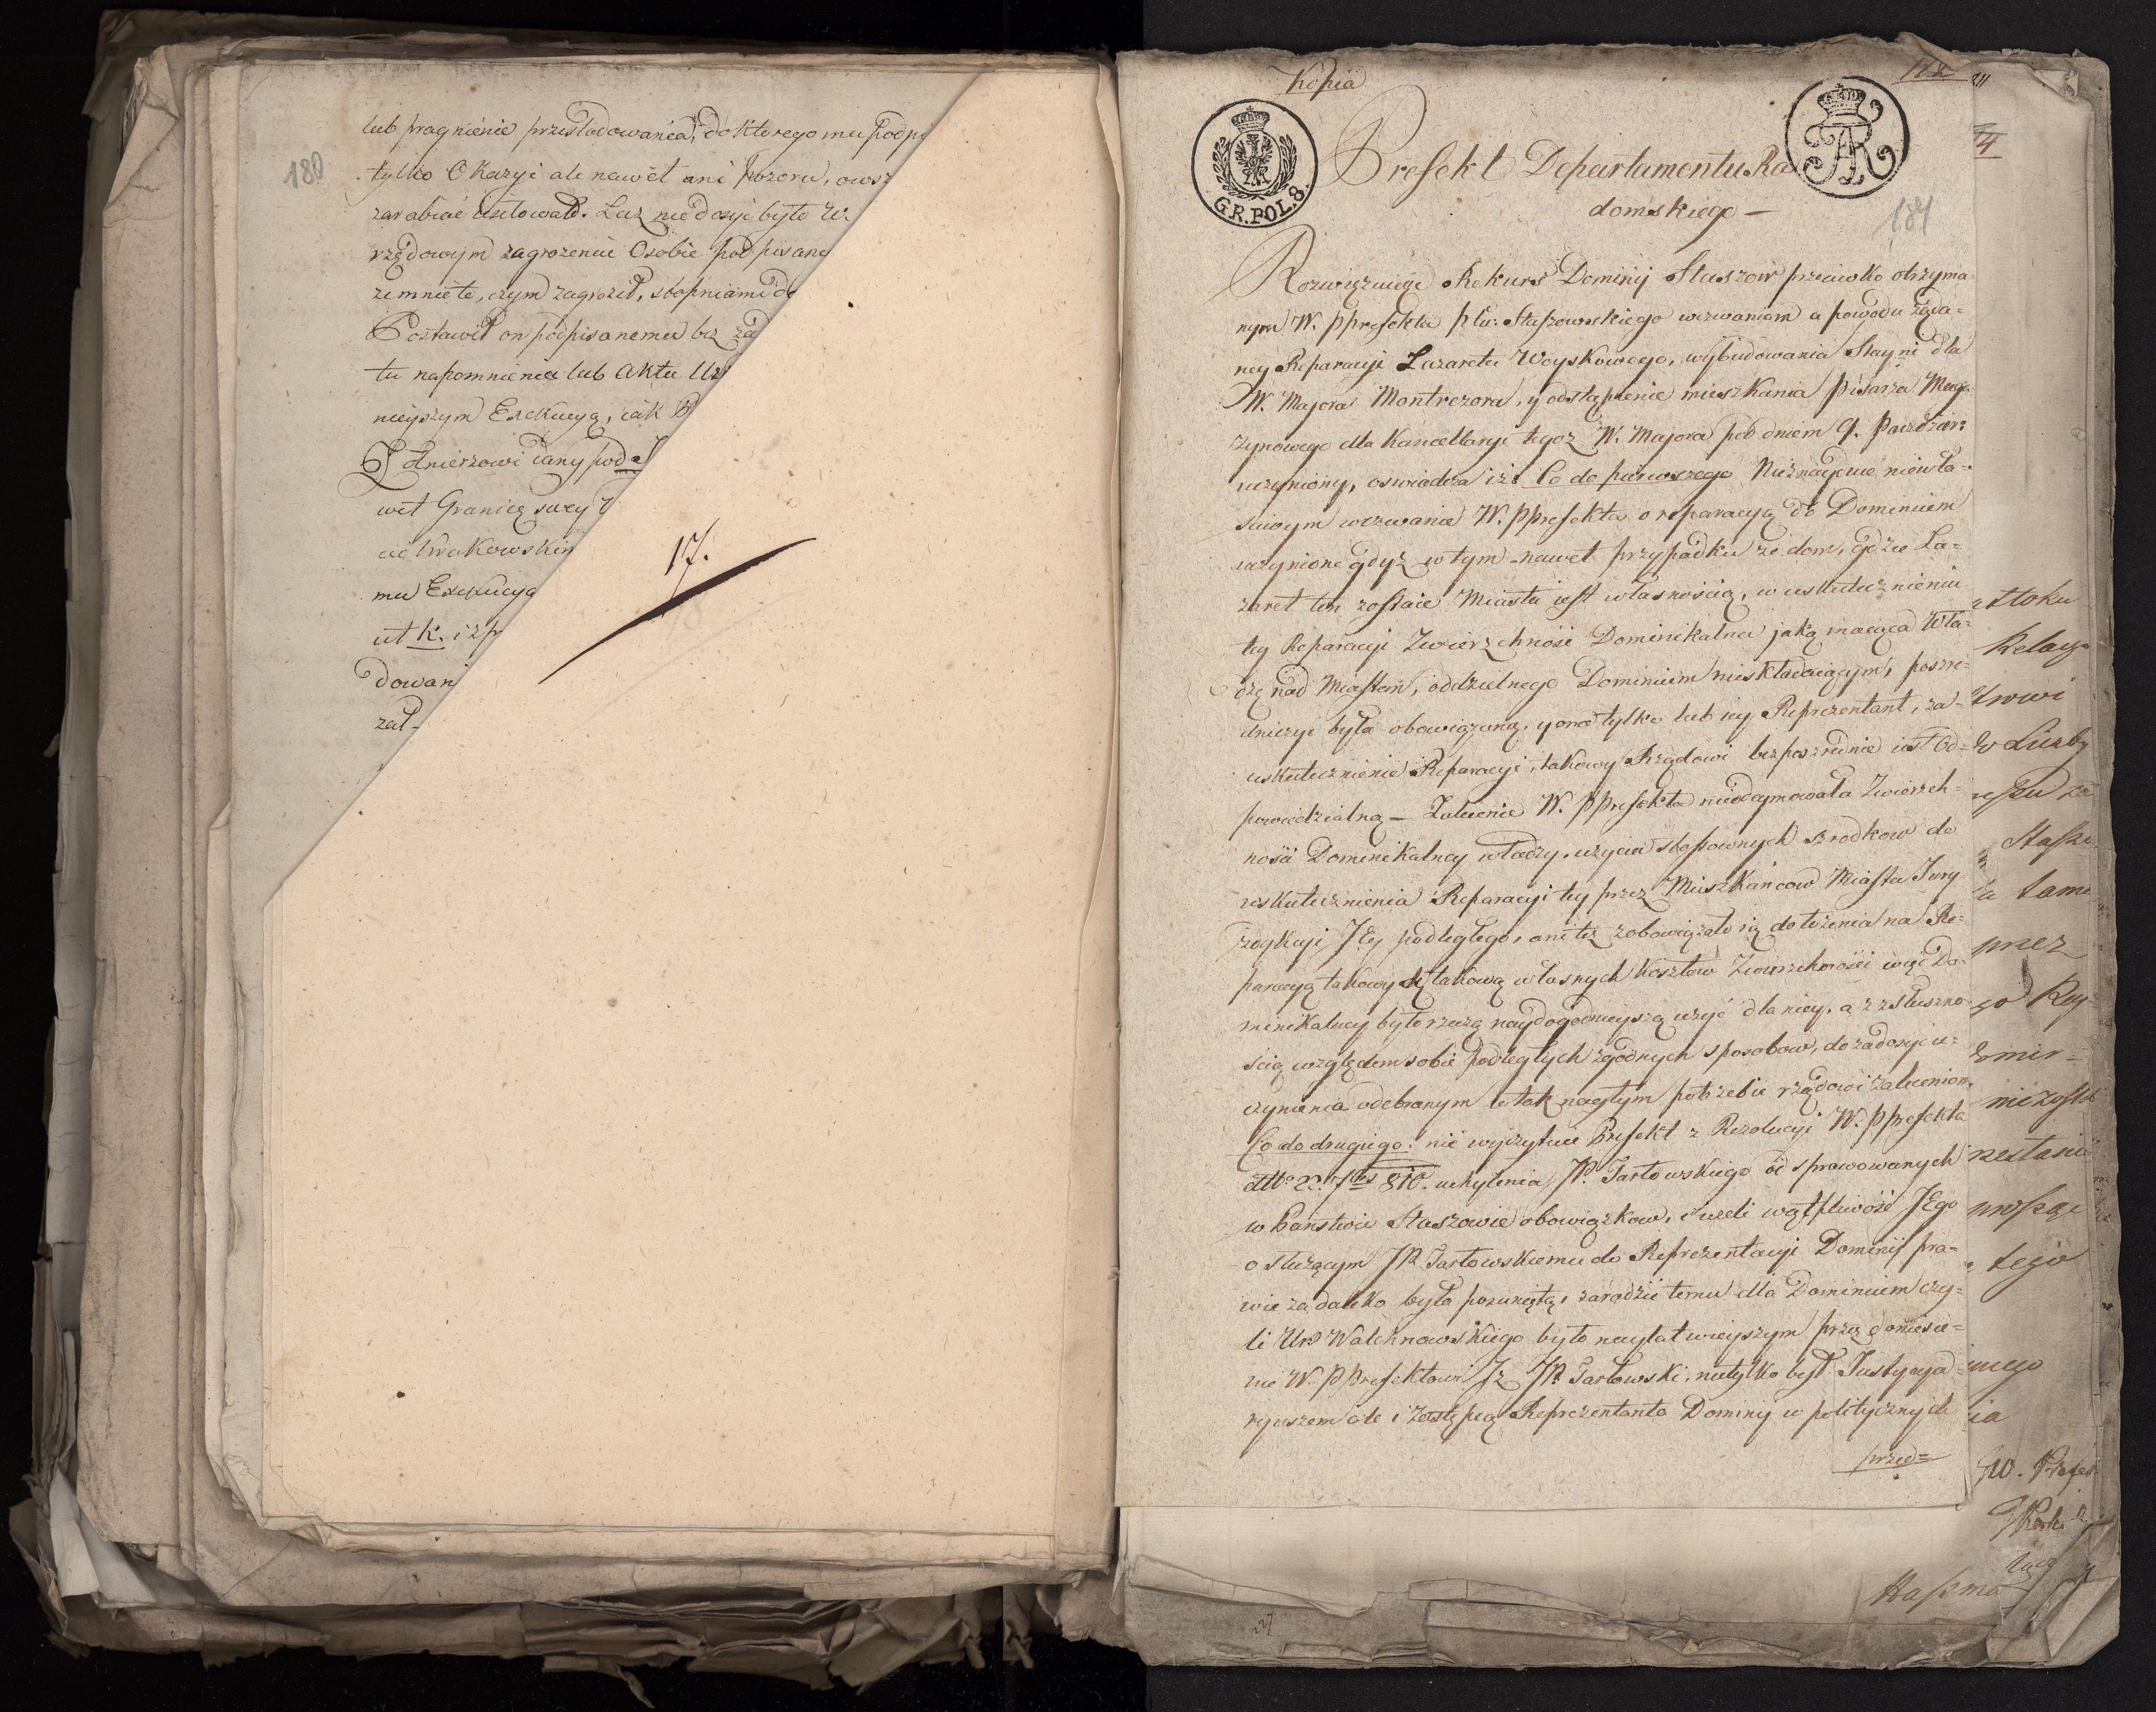 180
lub pragnienie prześladowania, do którego mu podpi
tylko Okazyi ale nawet ani pozoru, owsz
zarabiać usiłował. Lecz nie dosyć było W.
rządowym zagrożeniu Osobie podpisane
ze mnie te, czym zagroził, stopniami do
Postawił on podpisanemu bez żad
tu napomnienia lub Aktu Urz
nieyszym Exekucyą, iak
Żołnierzowi dany pod
wet Granicę swey
cie Krakowskim
mu Exekucyą
ut k. i zpr
dowani
zał-
17.
Kopia
GR.POL.8.
Prefekt Departamentu Ra
domskiego —
181
Rozwiązuiąc Rekurs Dominij Staszow przeciwko otrzyma
nym W. PPrefekta Ptu: Staszowskiego wezwaniom a powodu żąda-
ney Reparacyi Lazaretu Woyskowego, wybudowania Stayni dla
W. Majora Montrezora, y odstąpienie mieszkania Pisarza Maga-
zynowego dla Kancellaryi tegoż W. Majora pod dniem 9. Paźdźier:
uczyniony, oswiadcza iż: Co do pierwszego Nieznayduie niewła-
sciwym wezwanie W. PPrefekta o reparacyą do Dominium
uczynione gdyż w tym nawet przypadku że dom, gdzie La=
zaret ten zostaie Miasta iest własnością, w uskutecznieniu
tey Reparacyi Zwierzchność Dominikalna jaką maiąca Wła=
dzę nad Miastem, oddzielnego Dominium nieskładaiącym, poszre=
dniczyć była obowiązaną, y ona tylko lub iey Reprezentant, za=
uskutecznienie Reparacyi, takowy Rządowi bezposzrednie iest Od=
powiedzialną — Zalecenie W. PPrefekta nieodeymowała Zwierzch-
ności Dominikalney władzy, użycia stosownych szrodkow do
uskutecznienia Reparacyi tey przez Mieszkańcow Miasta Jury-
zdykcyi JEy podległego, ani też zobowiązało ią do łożenia na Re=
paracyą takowy takową własnych Kosztow Zwierzchności więc Do=
minikalney było rzeczą naydogodnieyszą użyć dla niey, a z słuszno
ścią względem sobie podległych zgodnych sposobow, do zadosyć u=
czynienia odebranym w tak nagłym potrzebie rządowi zaleceniom,
Co do drugiego: nie wyczytuie Prefekt z Rezolucyi W. PPrefekta
dtto 22. 7bris 810. uchylenia JP. Tarłowskiego od sprawowanych
w Państwie Staszowie obowiązkow, ieżeli wątpliwość JEgo
o służącym JP. Tarłowskiemu do Reprezentacyi Dominij pra=
wie za daleko była posunięta, zaradzić temu dla Dominium czy=
li Ur. Walchnowskiego było nayłatwieyszym przez doniesie=
nie W. PPrefektowi Iż JP. Tarłowski, nietylko był Justycya=
ryuszem ale i Zastępcą Reprezentanta Dominij w politycznych
przed=
4
Relacy
prez
tego